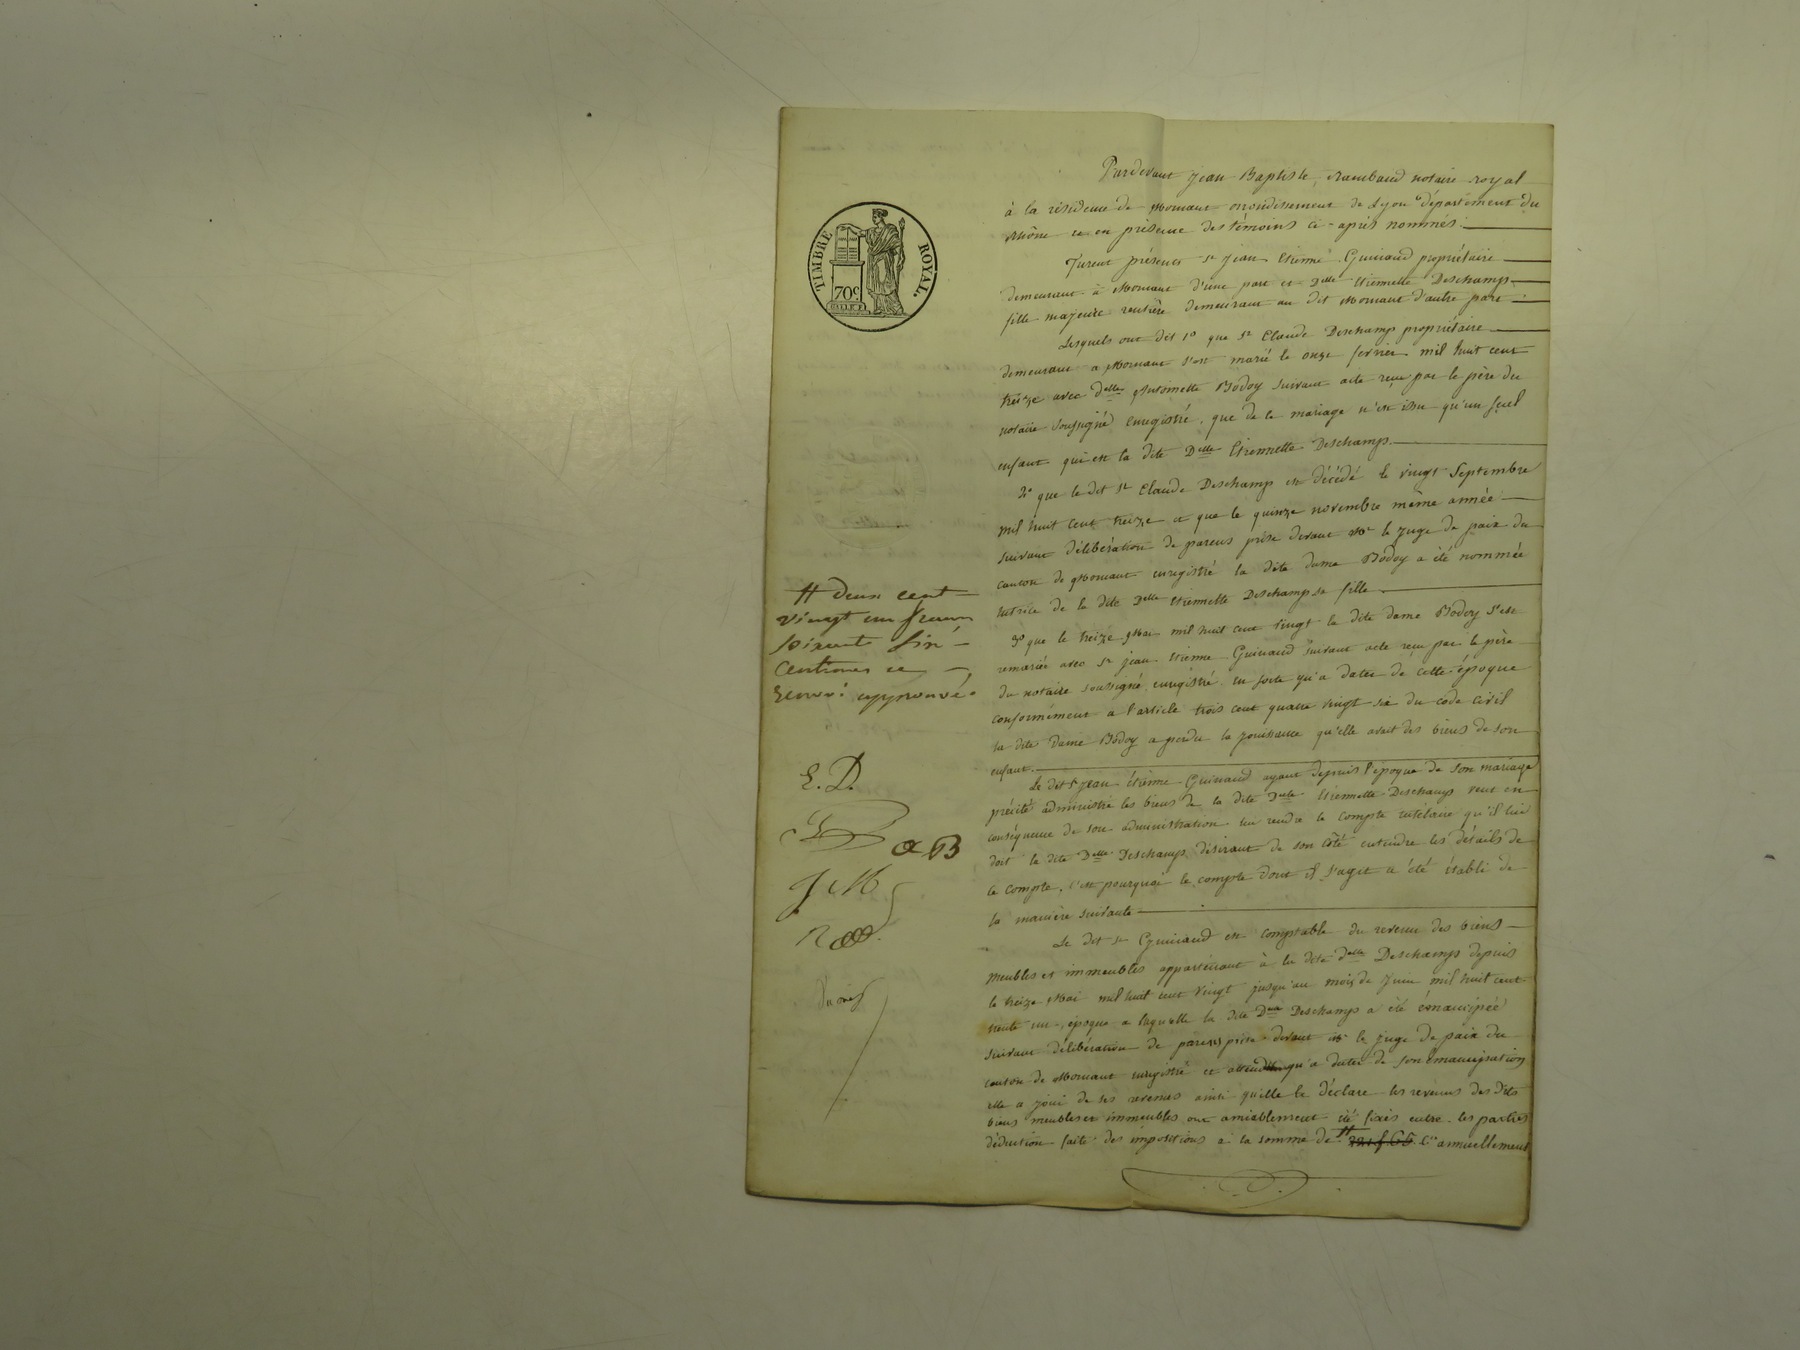 TIMBRE ROYAL.
70c
Pardevant Jean Baptiste Rambaud notaire royal
à la résidence de Mornant arrondissement de Lyon département du
Rhône et en présence des témoins ci-après nommés.
Furent présents sr jean Etienne Guinand propriétaire
demeurant à Mornant d'une part et Delle Etiennette Deschamp
fille majeure rentière demeurant au dit Mornant d'autre part
Lesquels ont dit 1o que Sr Claude Deschamp propriétaire
demeurant a Mornant s'est marié le onze fevrier mil huit cent
treize avec delle Antoinette Bodoy suivant acte reçu par le père du
notaire soussigné enregistré, que de ce mariage n'est issu qu'un seul
enfant qui est la dite Delle Etiennette Deschamp.
2o que le dit Sr Claude Deschamp est décédé le vingt Septembre
mil huit cent treize et que le quinze novembre même année
suivant délibération de parens prise devant Mr le juge de paix du
canton de Mornant enregistré la dite dame Bodoy a été nommée
tutrice de la dite Delle Etiennette Deschamp sa fille.
3o que le treize Mai mil huit cent vingt la dite dame Bodoy s'est
remariée avec Sr jean Etienne Guinand suivant acte reçu par le père
du notaire soussigné enregistré en sorte qu'a dater de cette époque
conformément a l'article trois cent quatre vingt six du code civil
la dite Dame Bodoy a perdu la jouissance qu'elle avait des biens de son
enfant.
Le dit Sr jean étienne Guinand ayant depuis l'époque de son mariage
précité administré les biens de la dite Delle Etiennette Deschamp veut en
conséquence de son administration lui rendre le compte tutélaire qu'il lui
doit la dite Delle Deschamp désirant de son côté entendre les détails de
ce compte, c'est pourquoi le compte dont il s'agit a été établi de
la manière suivante
Le dit sr Guinand est comptable du revenu des biens
meubles et immeubles appartenant à la dite delle Deschamp depuis
le treize Mai mil huit cent vingt jusqu'au mois de Juin mil huit cent
trente un, époque a laquelle la dite Delle Deschamp a été émancipée
suivant délibération de parens prise devant Mr le juge de paix du
canton de Mornant enregistré et attendu qu'a dater de son émancipation
elle a joui de ses revenus ainsi qu'elle le déclare les revenus des dits
biens meubles et immeubles ont amiablement été fixés entre les parties
déduction faite des impositions à la somme de # 221 f 65 c annuellement
# deux cent
vingt un francs
soixante cinq
centimes ce
renvoi approuvé.
E. D.
G
a B
J M
R